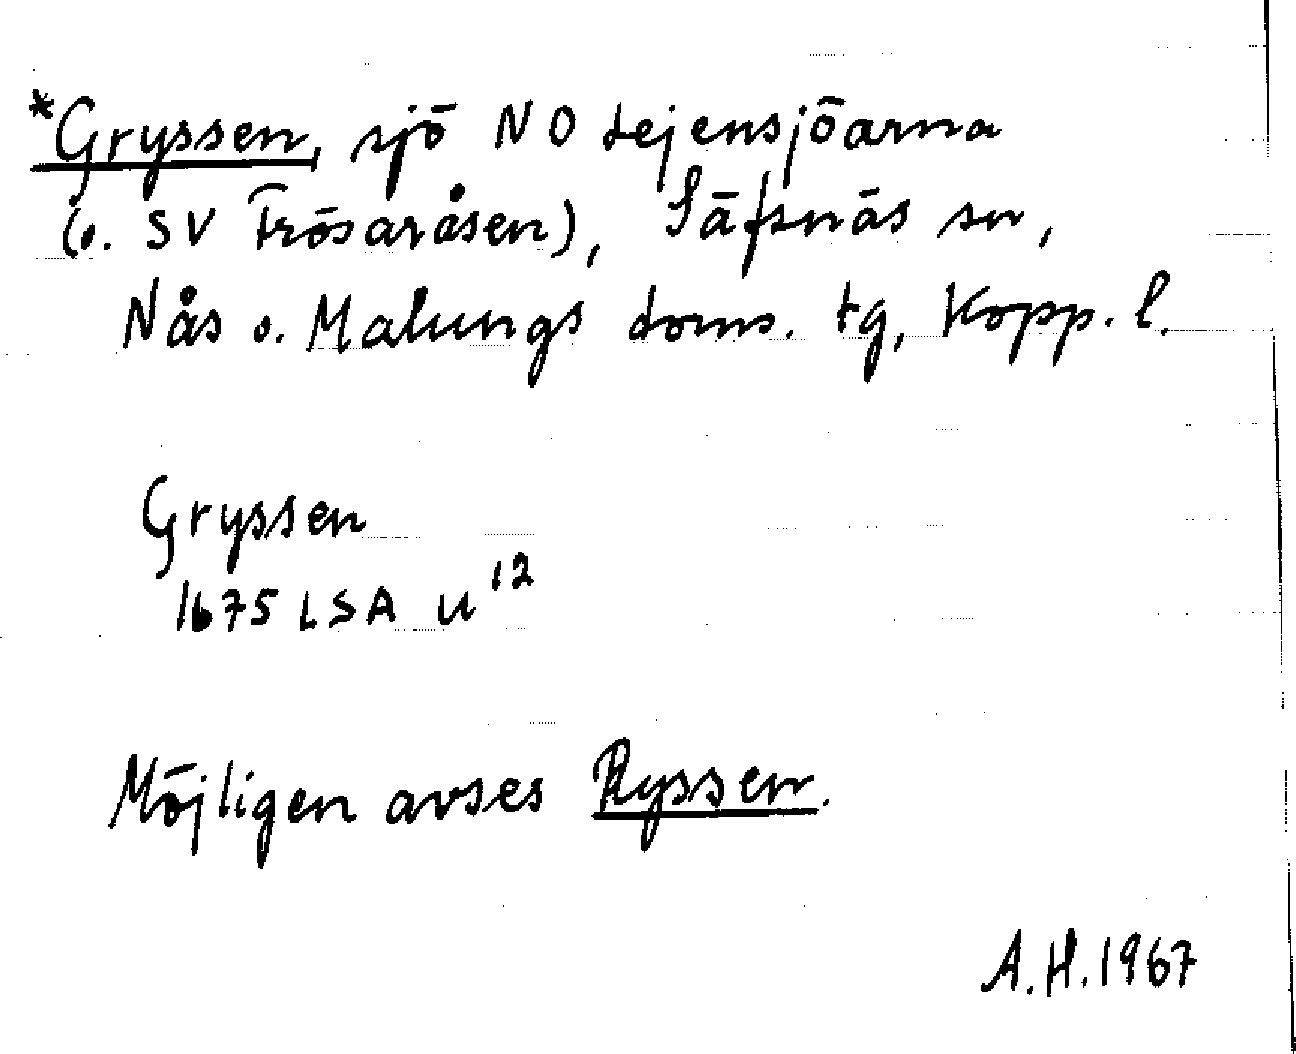 *Gryssen, sjö NO Lejensjöarna
(o. SV Frösaråsen), Säfsnäs sn,
Nås o. Malungs doms. tg, Kopp. l.
Gryssen
1675 LSA U 12
Möjligen avses Ryssen.
A.H. 1967